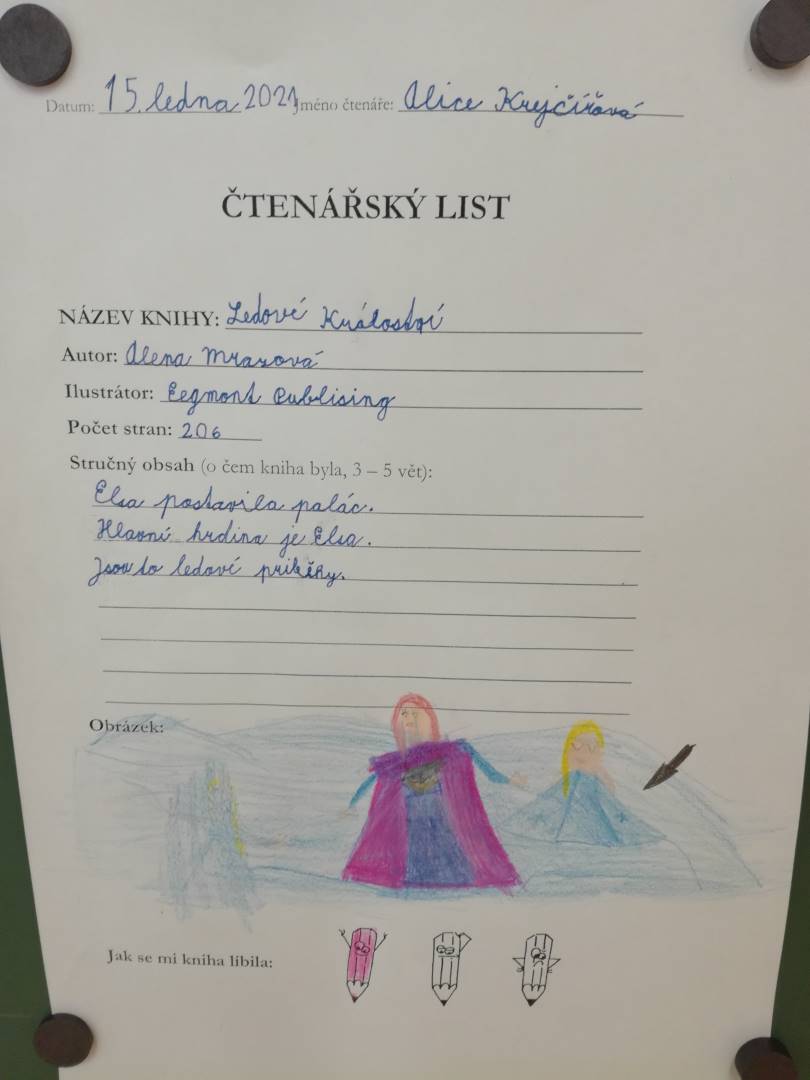 Datum: 15. ledna 2021 Jméno čtenáře: Alice Krejčířová
ČTENÁŘSKÝ LIST
NÁZEV KNIHY: Ledové Králoství
Autor: Alena Mrazová
Ilustrátor: Eegmont Publising
Počet stran: 206
Stručný obsah (o čem kniha byla, 3 – 5 vět):
Elsa postavila palác.
Hlavní hrdina je Elsa.
Jsou to ledové priběhy.
Obrázek:
Jak se mi kniha líbila: